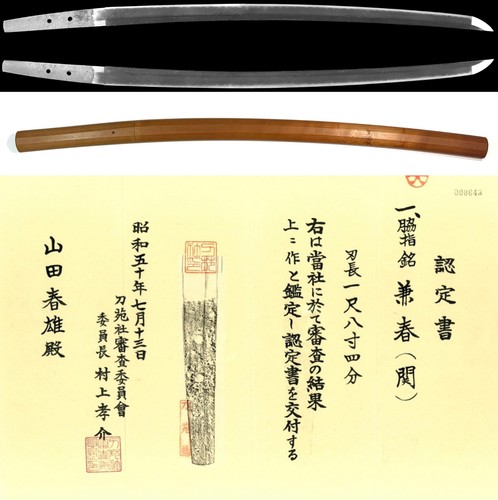 認定書
一、脇指 銘 兼春(関)
刃長 一尺八寸四分
右は當社に於て審査の結果
上ニ作と鑑定し認定書を交付する
昭和五十年七月十三日
刀苑社審査委員會
委員長 村上孝介
山田春雄殿